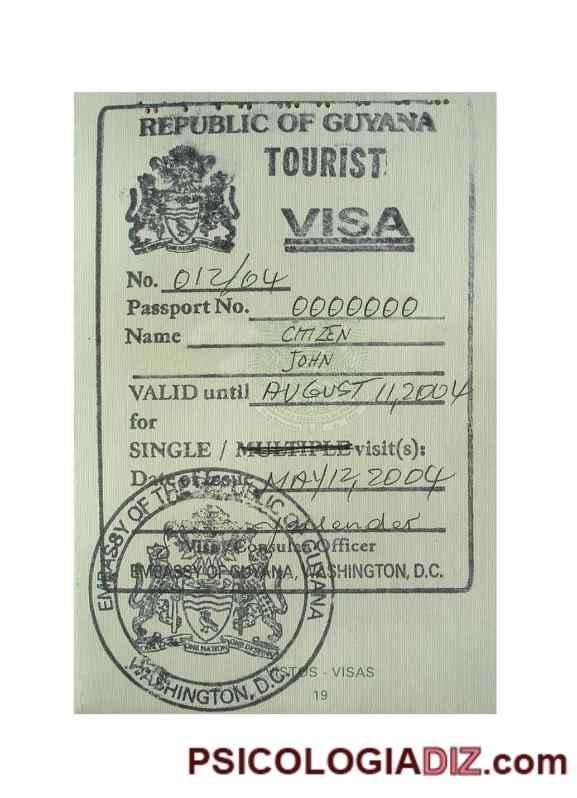 REPUBLIC OF GUYANA
TOURIST
VISA
No. 012/04
Passport No. 0000000
Name CITIZEN
JOHN
VALID until AUGUST 11, 2004
for
SINGLE / MULTIPLE visit(s):
Date of Issue MAY 12, 2004
Visa / Consular Officer
EMBASSY OF GUYANA, WASHINGTON, D.C.
EMBASSY OF THE REPUBLIC OF GUYANA
ONE NATION
WASHINGTON, D.C.
VISTOS - VISAS
19
PSICOLOGIADIZ.com